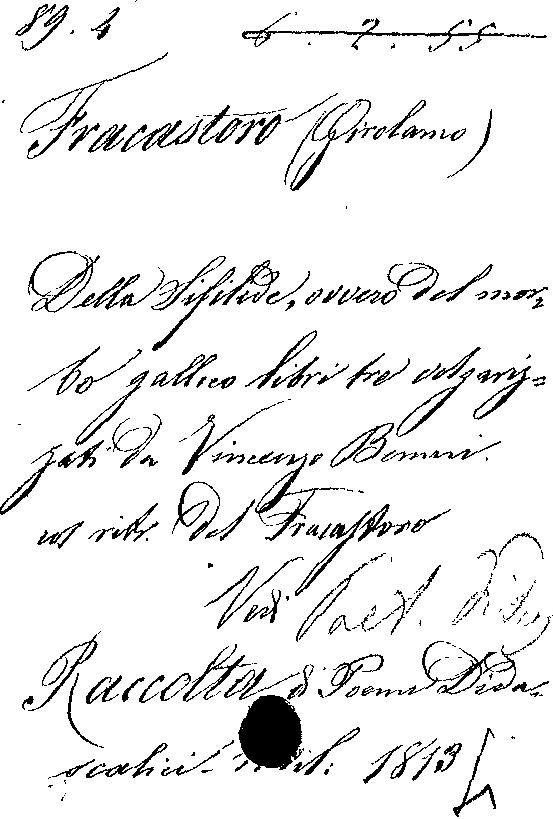 89. 4 6. 2. 55
Fracastoro (Girolamo)
Della Sifilide, ovvero del mor-
bo gallico libri tre volgariz=
zati da Vincenzo Benini.
col ritr. del Fracastoro
Vedi Poet. Didas
Raccolta di Poemi Dida-
scalici. Mil: 1813